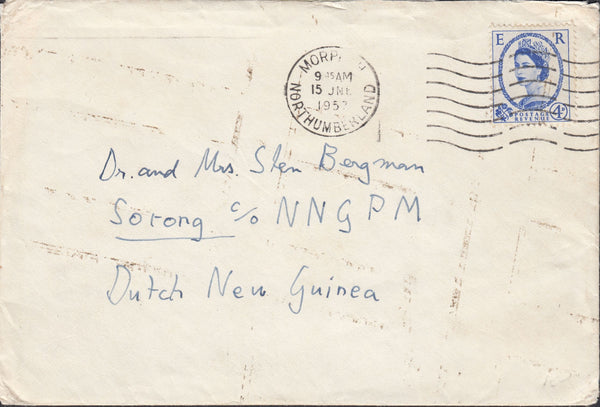 E R
POSTAGE
REVENUE
4D
9 15AM
15 JNE
NORTHUMBERLAND
Dr. and Mrs. Sten Bergman
Sorong c/o NNGPM
Dutch New Guinea